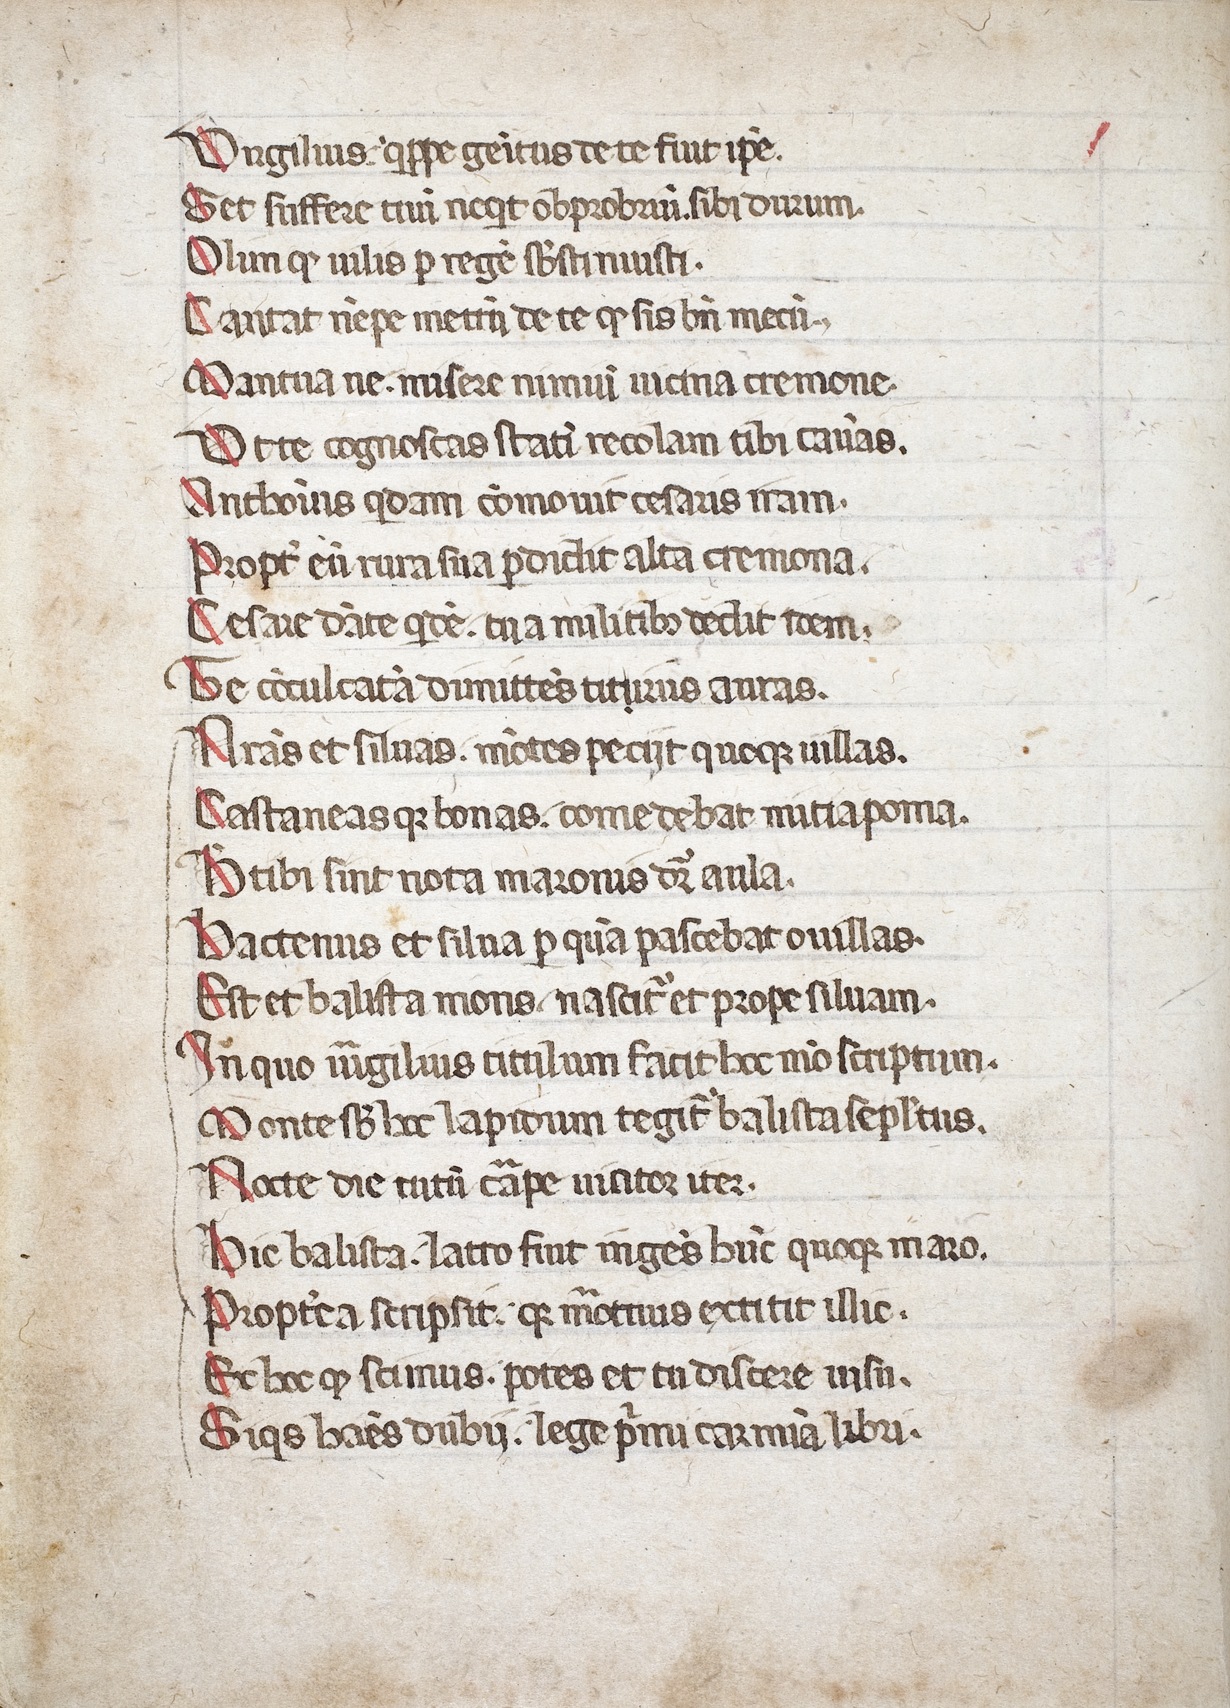 Virgilius. qͥppe genͥtus de te fuit ip̄e.
Set sufferre tuū neqͥt obprobriū. sibi durum.
Olim qꝫ uilis ꝑ regē sb̄stinuisti.
Cantat nēpe metrū de te qꝫ sis bn̄ mecū.
Mantua ne. misere nimiū uicina cremone.
Vt te cognoscas statī recolam tibi cāuas.
Anthoīus qͦdam cōmouit cesaris iram.
Propt̄ eū rura sua ꝑdidit alta cremona.
Cesare dāte qͥdē. tua militibꝫ dedit idem.
Te cōculcatā dimittēs titirus auras.
Aras et siluas. mōtes peciit quoqꝫ uillas.
Castaneas qꝫ bonas. comedebat mitia poma.
H tibi sint nota maronis dꝛ̄ aula.
Hactenus et silua ꝑ quā pascebat ouillas.
Est et balista mons. nascit᷑ et prope siluam.
In quo uirgilius titulum facit hoc mō scriptum.
Monte sb̄ hoc lapidum tegit᷑ balista sepl̄tus.
Nocte die tutū carͣpe uiator iter.
Hic balista. latro fuit ingēs hūc quoqꝫ maro.
Propt̄ea scripsit. qꝫ mͣotuus extitit illic.
Ex hoc qꝫ scimus. potes et tu discere uisu.
Siqͥs habēs dubij. lege pͥmi carmīa libri.